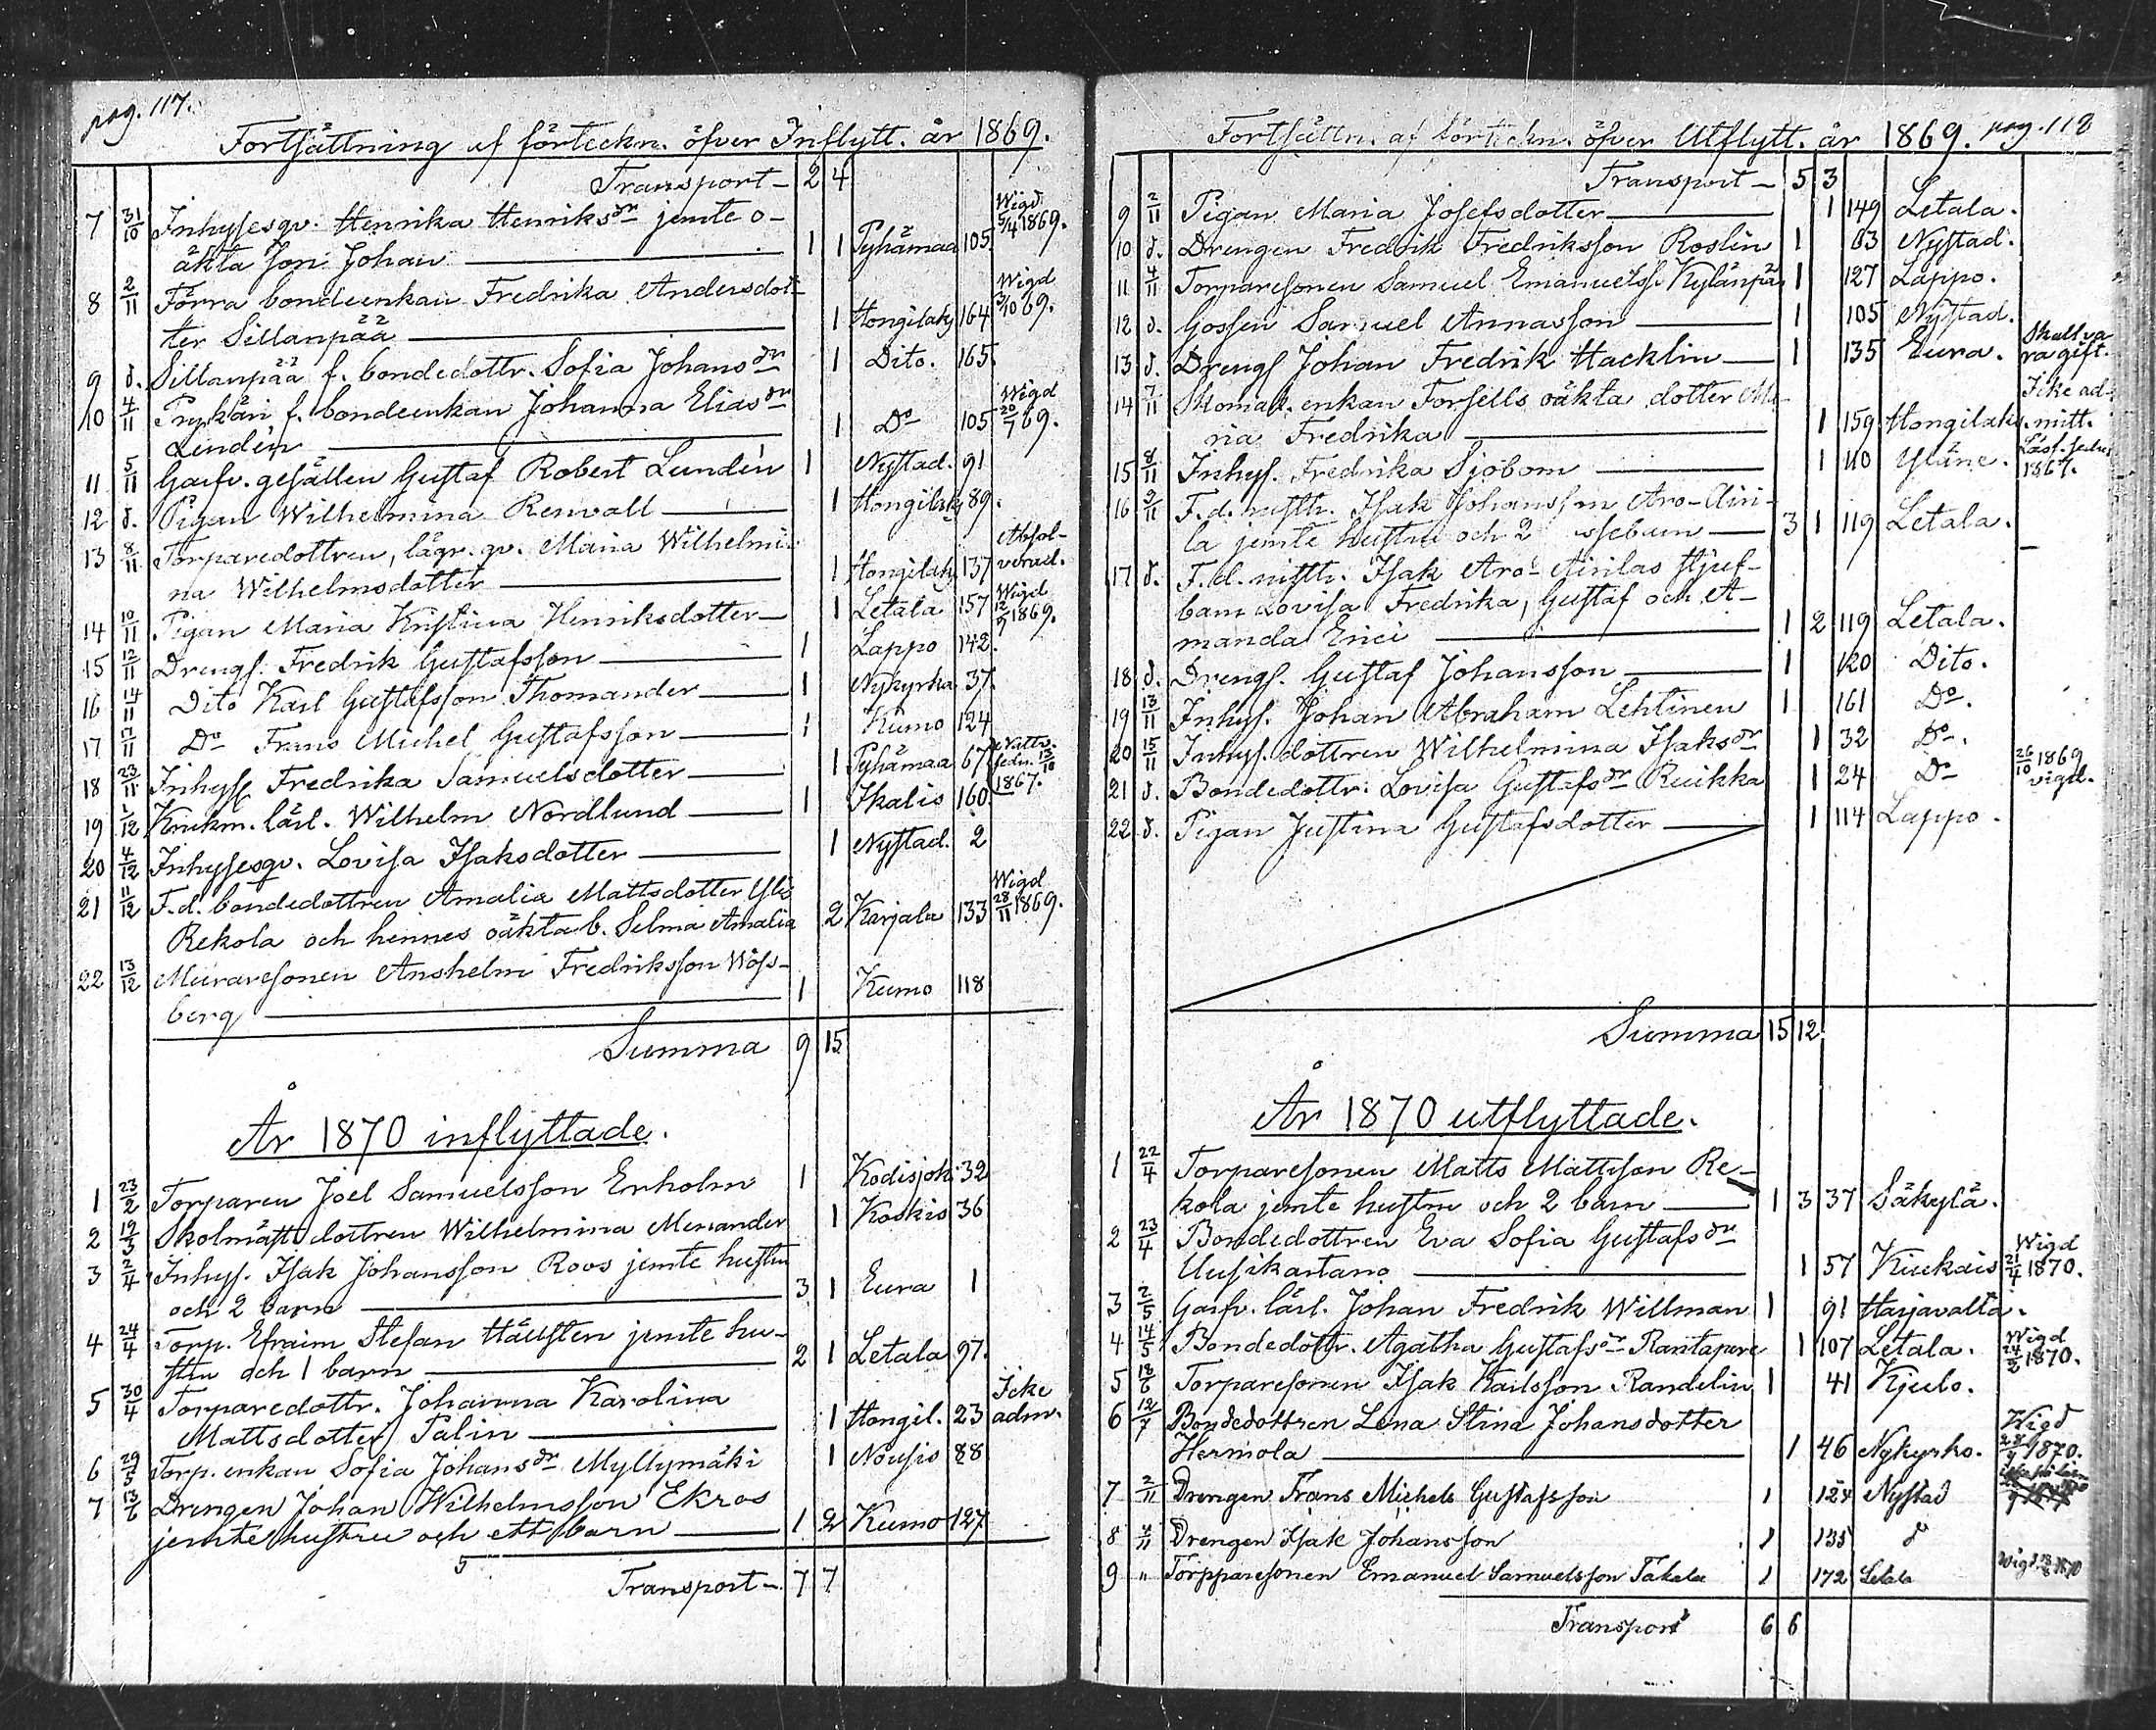 pag. 117.
Fortsättning af förteckn. öfver Inflytt. år 1869.
Transport — 2 4
7 31/10 Inhysesqv. Henrika Henriksdr jemte o-
äkta son Johan — 1 1 Pyhämaa 105. Wigd 5/4 1869.
8 2/11 Förra bondeenkan Fredrika Andersdot-
ter Sillanpää — 1 Hongilaks 164 Wigd 3/10 69.
9 d. Sillanpää f. bondedottr. Sofia Johansdr 1 Dito. 165.
10 4/11 f. bondeenkan Johanna Eliasdr
Lindén — 1 Do 105 Wigd 20/7 69.
11 5/11 Garfv. gesällen Gustaf Robert Lundén 1 Nystad. 91
12 d. Pigan Wilhelmina Renvall — 1 Hongilaks 89.
13 8/11 Torparedottren, lägr. qv. Maria Wilhelmi-
na Wilhelmsdotter — 1 Hongilaks 137 Absol-
verad.
14 10/11 Pigan Maria Kristina Henriksdotter — 1 Letala 157 Wigd 12/9 1869.
15 12/11 Drengs. Fredrik Gustafsson — 1 Lappo 142.
16 14/11 Dito Karl Gustafsson Thomander — 1 Nykyrka 37.
17 17/11 Do Frans Michel Gustafsson — 1 Kumo 124
18 23/11 Inhyss Fredrika Samuelsdotter — 1 Pyhämaa 67 Nattv. sedn. 13/10 1867.
19 1/12 Krukm. lärl. Wilhelm Nordlund — 1 Ikalis 160.
20 4/12 Inhysesqv. Lovisa Isaksdotter — 1 Nystad. 2
21 11/12 F.d. bondedottren Amalia Mattsdotter Yli
Rekola och hennes oäkta b. Selma Amalia 2 Karjala 133 Wigd 28/11 1869.
22 13/12 Muraresonen Anshelm Fredriksson Wöss-
berg — 1 Kumo 118
Summa 9 15
År 1870 inflyttade.
1 23/2 Torparen Joel Samuelsson Enholm 1 Kodisjoki 32
2 12/3 Skolmäst. dottren Wilhelmina Menander 1 Koskis 36
3 2/4 Inhys. Isak Johansson Roos jemte hustru
och 2 barn — 3 1 Eura 1
4 24/4 Torp. Efraim Stefan Häusten jemte hu-
stru och 1 barn — 2 1 Letala 97.
5 30/4 Torparedottr. Johanna Karolina
Mattsdotter Palin — 1 Hongil. 23 Icke adm.
6 29/5 Torp. enkan Sofia Johansdr Myllymäki 1 Nousis 88
7 13/6 Drengen Johan Wilhelmsson Ekros
jemte hustru och ett barn — 1 2 Kumo 127
5
Transport — 7 7
Fortsättn. af förteckn. öfver Utflytt. år 1869. pag. 118
Transport — 5 3
9 2/11 Pigan Maria Josefsdotter — 1 149 Letala.
10 d. Drengen Fredrik Fredriksson Roslin 1 63 Nystad.
11 4/11 Torparesonen Samuel Emanuelss. Kylänpää 1 127 Lappo.
12 d. Gossen Samuel Annasson — 1 105 Nystad.
13 d. Drengs Johan Fredrik Hacklin — 1 135 Eura. Skall va-
ra gift.
14 7/11 Skomak. enkan Forsells oäkta dotter Ma-
ria Fredrika — 1 159 Hongilaks. Icke ad-
mitt.
15 8/11 Inhys. Fredrika Sjöbom — 1 110 Yläne. 1867.
16 9/11 F.d. rustth. Isak Johansson Aro-Airi-
la jemte hustru och 2 barn — 3 1 119 Letala.
17 d. F.d. rustth. Isak Aro-Airilas styf-
barn Lovisa Fredrika, Gustaf och A-
manda Erici — 1 2 119 Letala.
18 d. Drengs. Gustaf Johansson — 1 120 Dito.
19 13/11 Inhys. Johan Abraham Lehtinen 1 161 Do.
20 15/11 Inhys. dottren Wilhelmina Isaksdr 1 32 Do.
21 d. Bondedottr. Lovisa Gustafsdr Ruikka 1 24 Do 26/10 1869 vigd.
22 d. Pigan Justina Gustafsdotter — 1 114 Lappo.
Summa 15 12.
År 1870 utflyttade.
1 22/4 Torparesonen Matts Mattsson Re-
kola jemte hustru och 2 barn — 1 3 37 Säkylä.
2 23/4 Bondedottren Eva Sofia Gustafsdr
Uusikartano — 1 57 Kiukais Wigd 21/4 1870.
3 2/5 Garfv. lärl. Johan Fredrik Willman 1 91 Harjavalta.
4 14/5 Bondedottr. Agatha Gustafsdr Rantapere 1 107 Letala. Wigd 1870.
5 18/6 Torparesonen Isak Karlsson Randelin 1 41 Kjulo.
6 12/7 Bondedottren Lena Stina Johansdotter
Hermola — 1 46 Nykyrko. Wigd 1870.
7 2/11 Drengen Frans Michels Gustafsson 1 124 Nystad
8 4/11 Drengen Isak Johansson 1 135 d
9 " Torpparesonen Emanuel Samuelsson Takala 1 172 Letala Wigd 1870
Transport 6 6